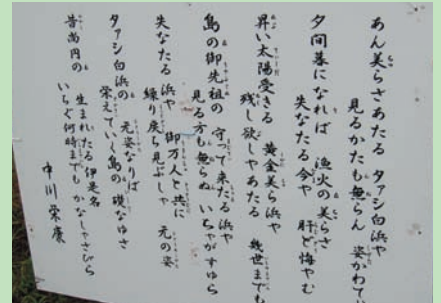 あん美らさあたる タァシ白浜や
見るかたも無らん 姿かわて
夕間暮になれば 漁火の美らさ
失なたる今や 肝ど悔やむ
昇い太陽受きる 黄金美ら浜や
残し欲しゃあたる 幾世までも
島の御先祖の 守って来たる浜や
見る方も無らぬ いちゃがすゆら
失なたる浜や 御万人と共に
繰り戻ち見ぶしゃ 元の姿
タァシ白浜の 元姿なりば
栄えていく島の 礎なゆさ
昔尚円の 生まれたる伊是名
いちぢ何時までも かなしゃさびら
中川栄康